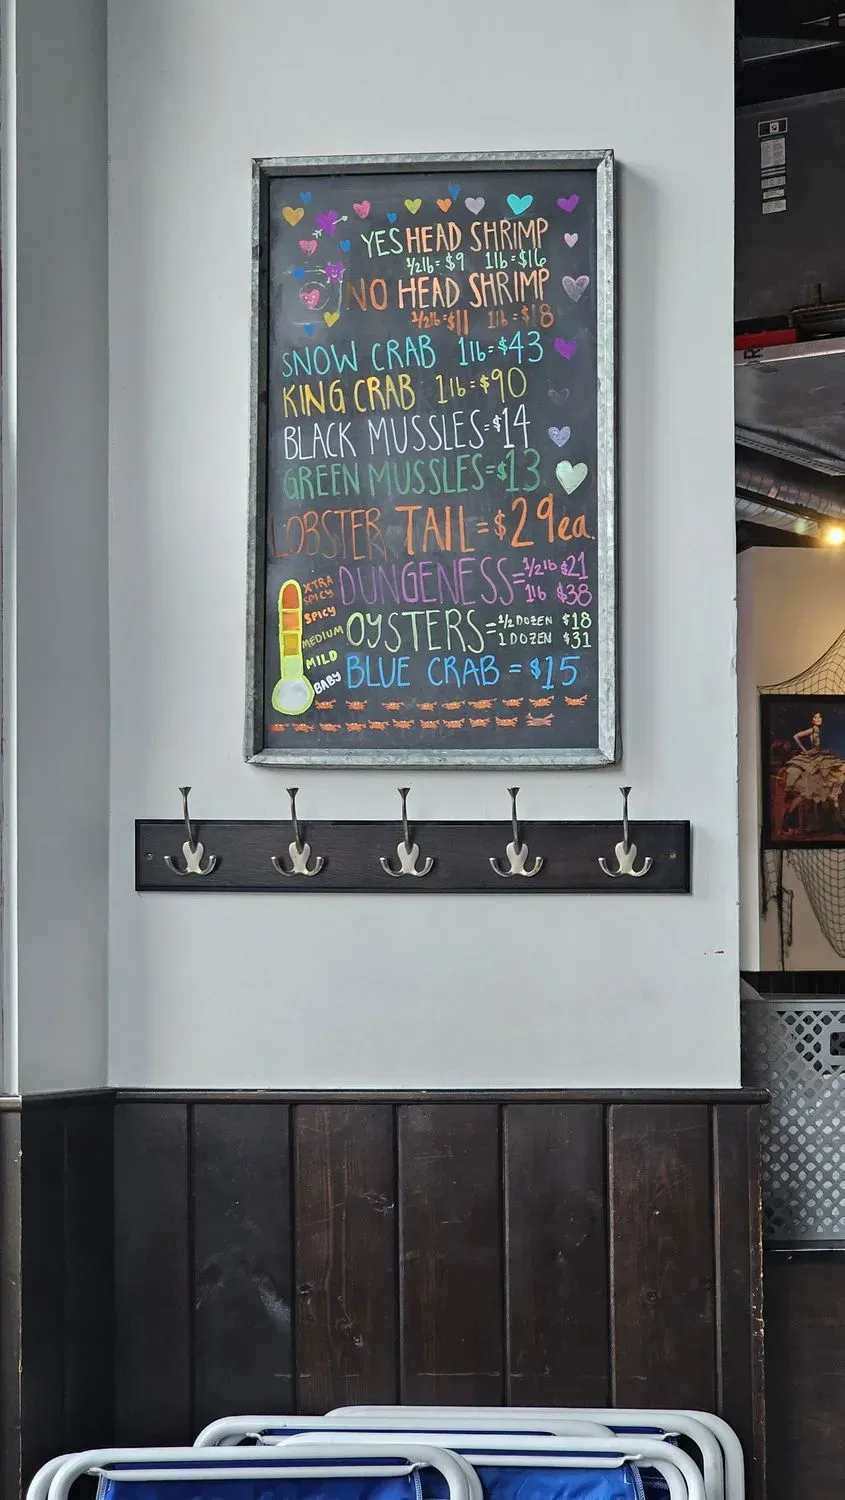 YES HEAD SHRIMP
1/2lb=$9 1lb=$16
NO HEAD SHRIMP
1/2lb=$11 1lb=$18
SNOW CRAB 1lb=$43
KING CRAB 1lb=$90
BLACK MUSSLES=$14
GREEN MUSSLES=$13
LOBSTER TAIL=$29ea.
DUNGENESS=1/2lb $21
1lb $38
OYSTERS=1/2 DOZEN $18
1 DOZEN $31
BLUE CRAB=$15
XTRA
SPICY
SPICY
MEDIUM
MILD
BABY